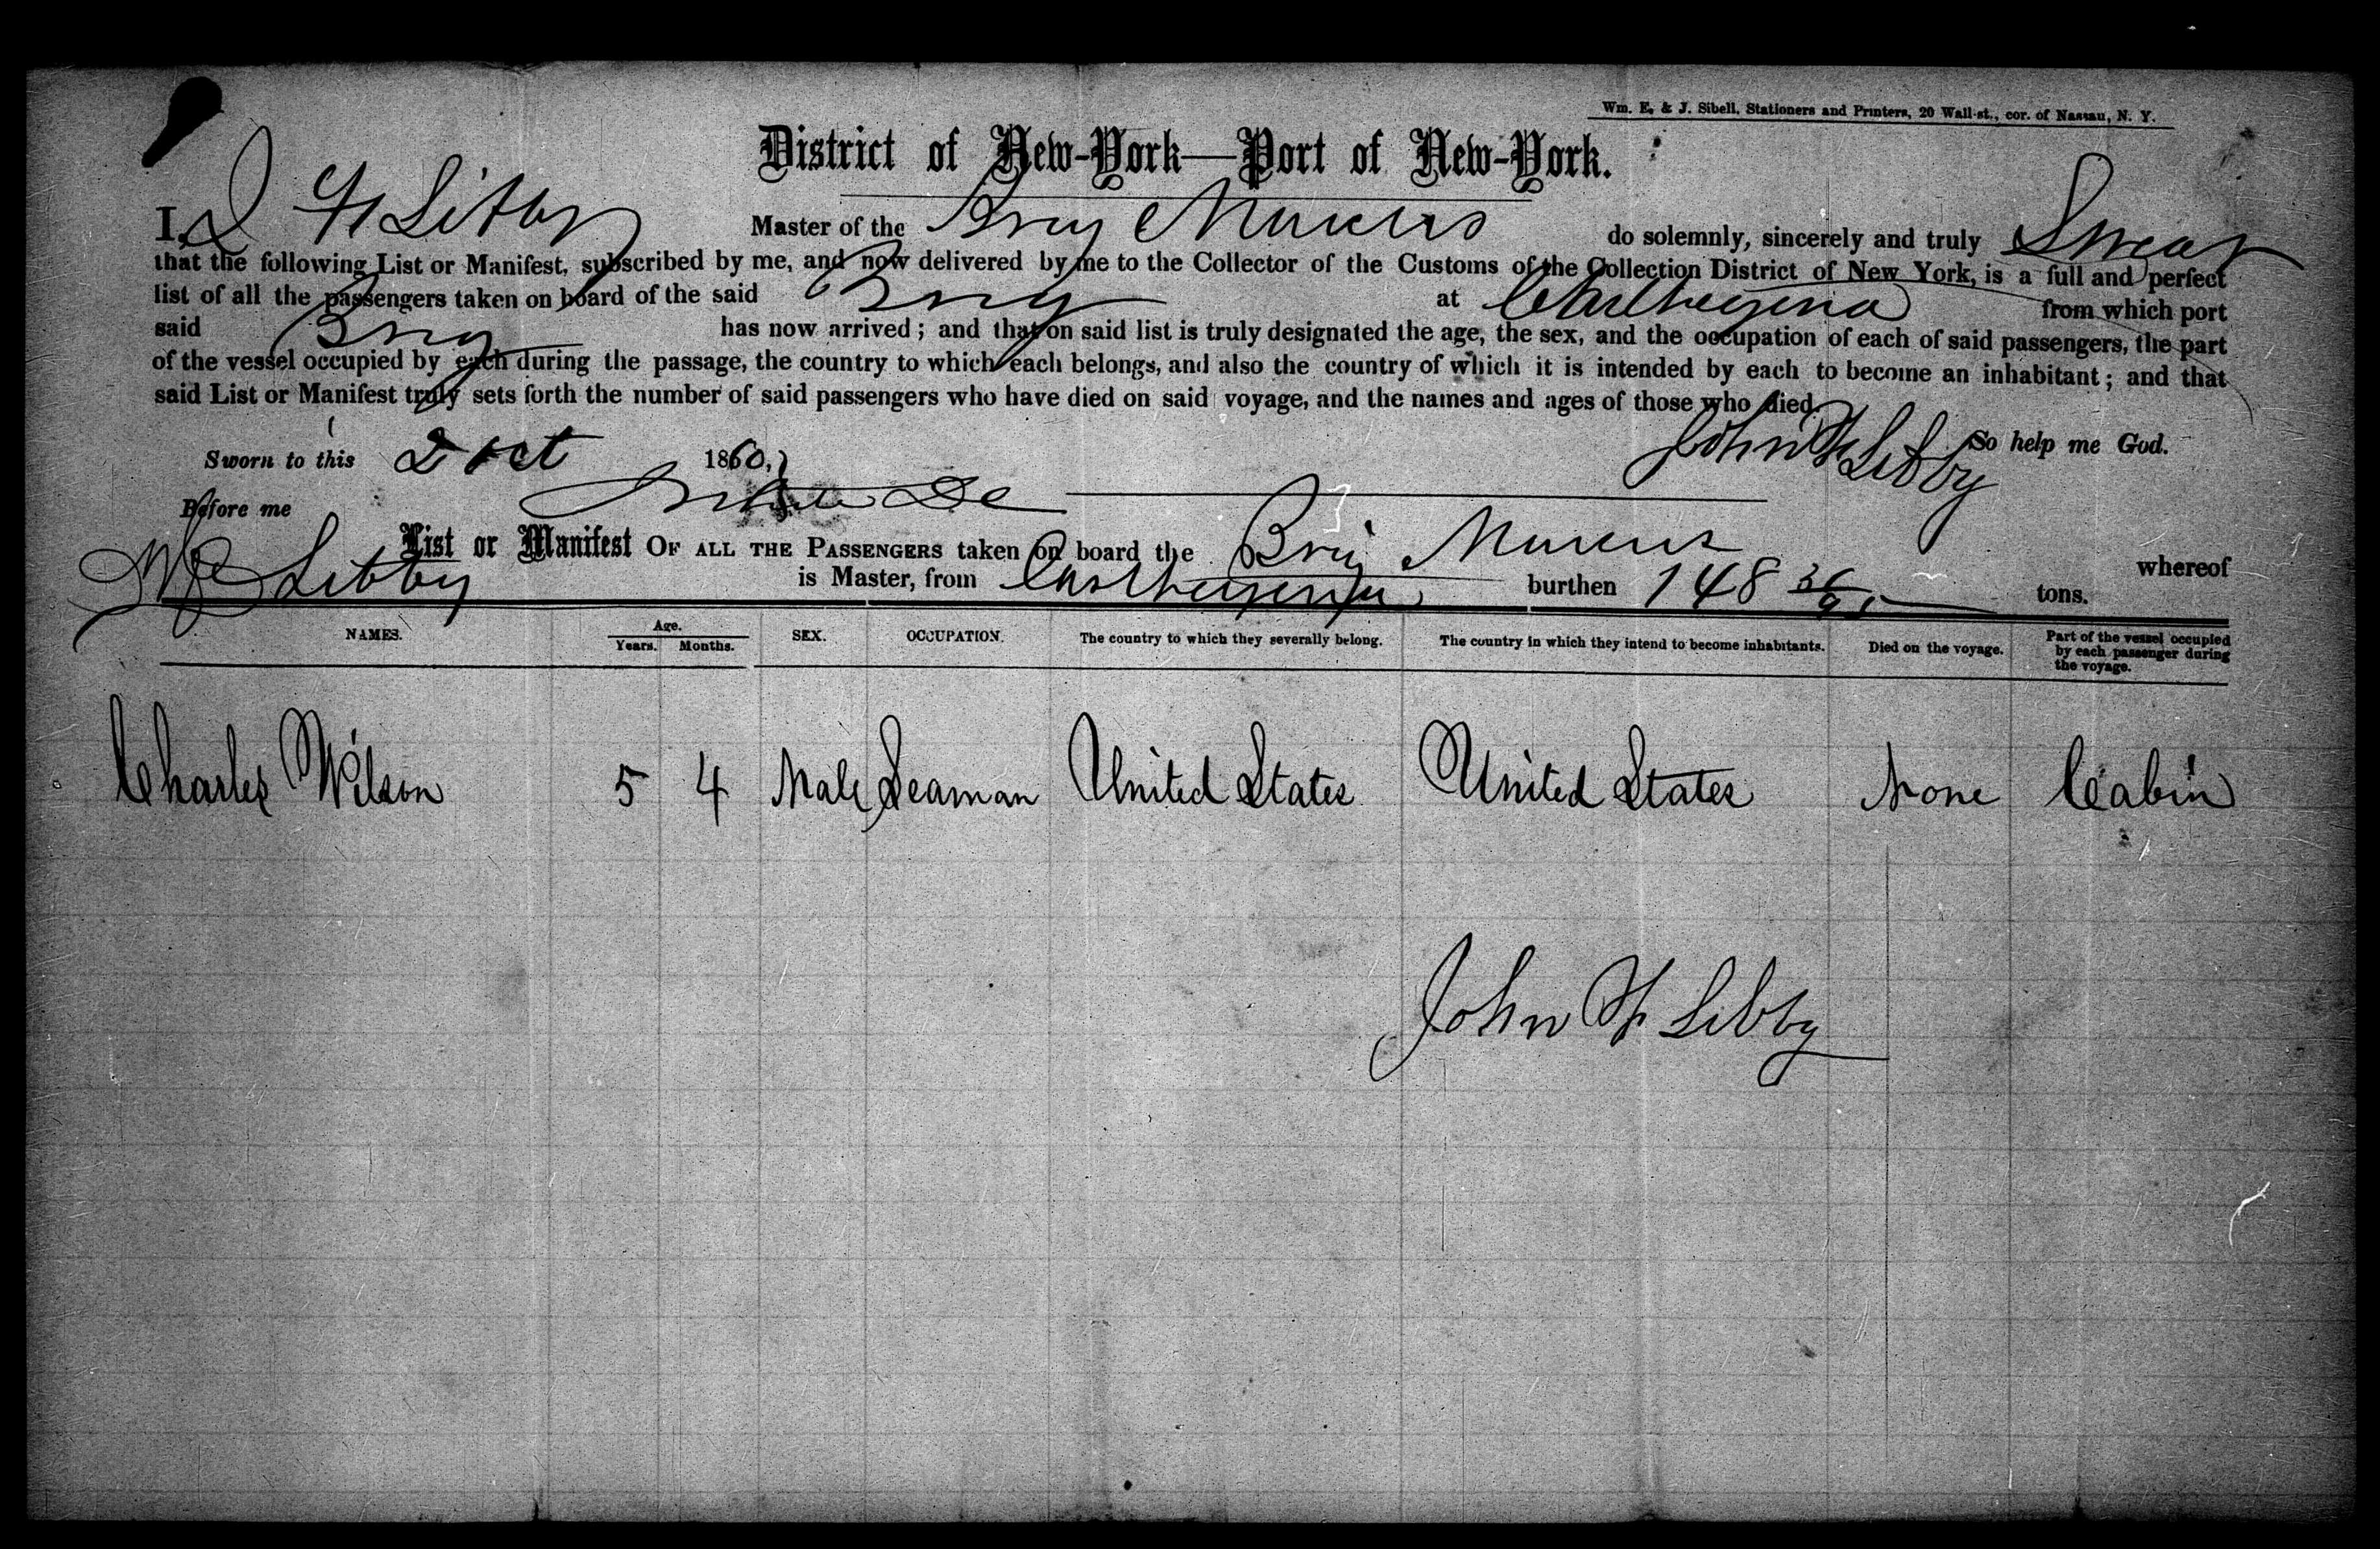 Wm. E. & J. Sibell, Stationers and Printers, 20 Wall-st., cor. of Nassau, N. Y.
District of New-York—Port of New-York.
I, J H Libby Master of the Brig Marcus do solemnly, sincerely and truly Swear
that the following List or Manifest, subscribed by me, and now delivered by me to the Collector of the Customs of the Collection District of New York, is a full and perfect
list of all the passengers taken on board of the said Brig at Carthegena from which port
said Brig has now arrived; and that on said list is truly designated the age, the sex, and the occupation of each of said passengers, the part
of the vessel occupied by each during the passage, the country to which each belongs, and also the country of which it is intended by each to become an inhabitant; and that
said List or Manifest truly sets forth the number of said passengers who have died on said voyage, and the names and ages of those who died.
So help me God.
Sworn to this 2 Oct 1860, John H Libby
Before me
List or Manifest OF ALL THE PASSENGERS taken on board the Brig Marcus whereof
Libby is Master, from Carthegena burthen 148 tons.
NAMES. Age. Years. Months. SEX. OCCUPATION. The country to which they severally belong. The country in which they intend to become inhabitants. Died on the voyage. Part of the vessel occupied by each passenger during the voyage.
Charles Wilson 5 4 Male Seaman United States United States None Cabin
John H Libby